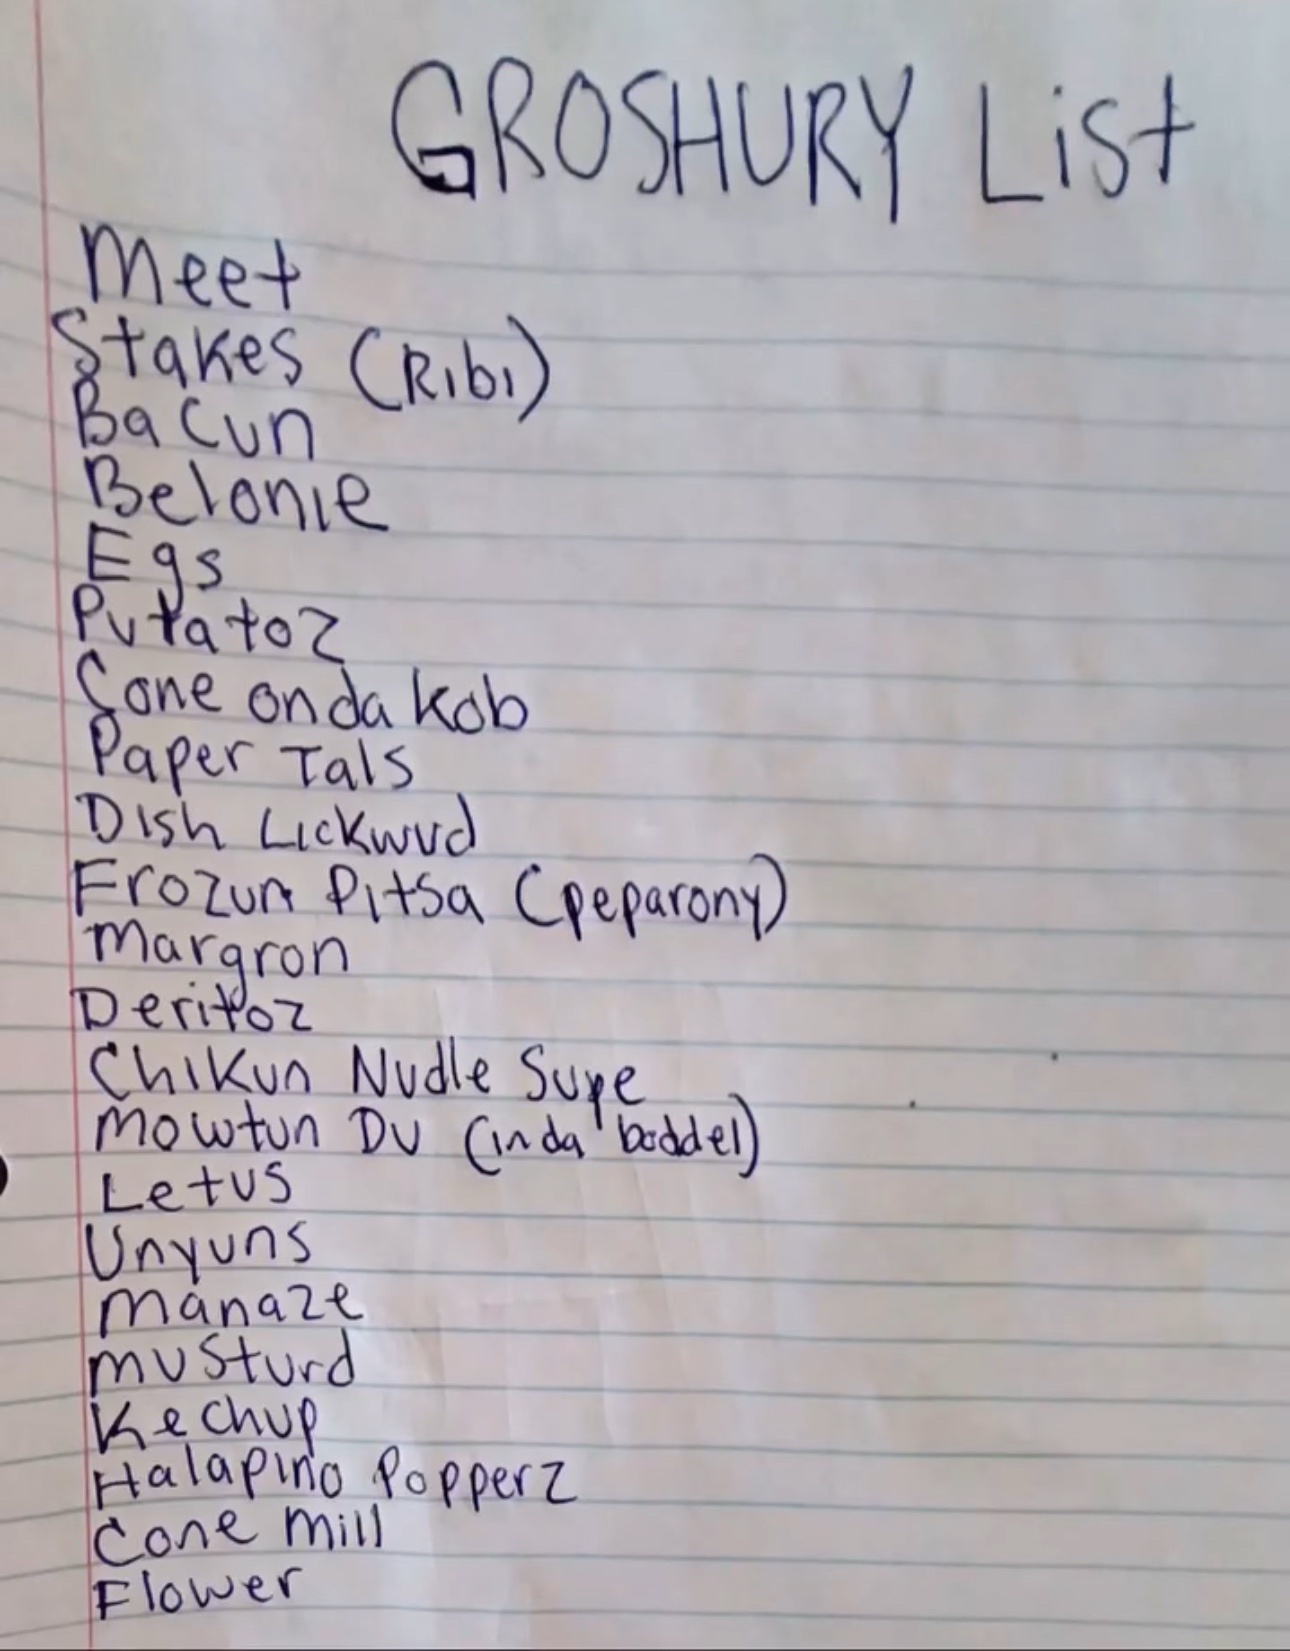 GROSHURY List
Meet
Stakes (Ribi)
Bacun
Belonie
Egs
Putatoz
Cone onda Kob
Paper Tals
Dish Lickwud
Frozun Pitsa (peparony)
Margron
Deritoz
Chikun Nudle Supe
Mowtun Du (inda boddel)
Letus
Unyuns
Manaze
Musturd
Kechup
Halapino Popperz
Cone Mill
Flower